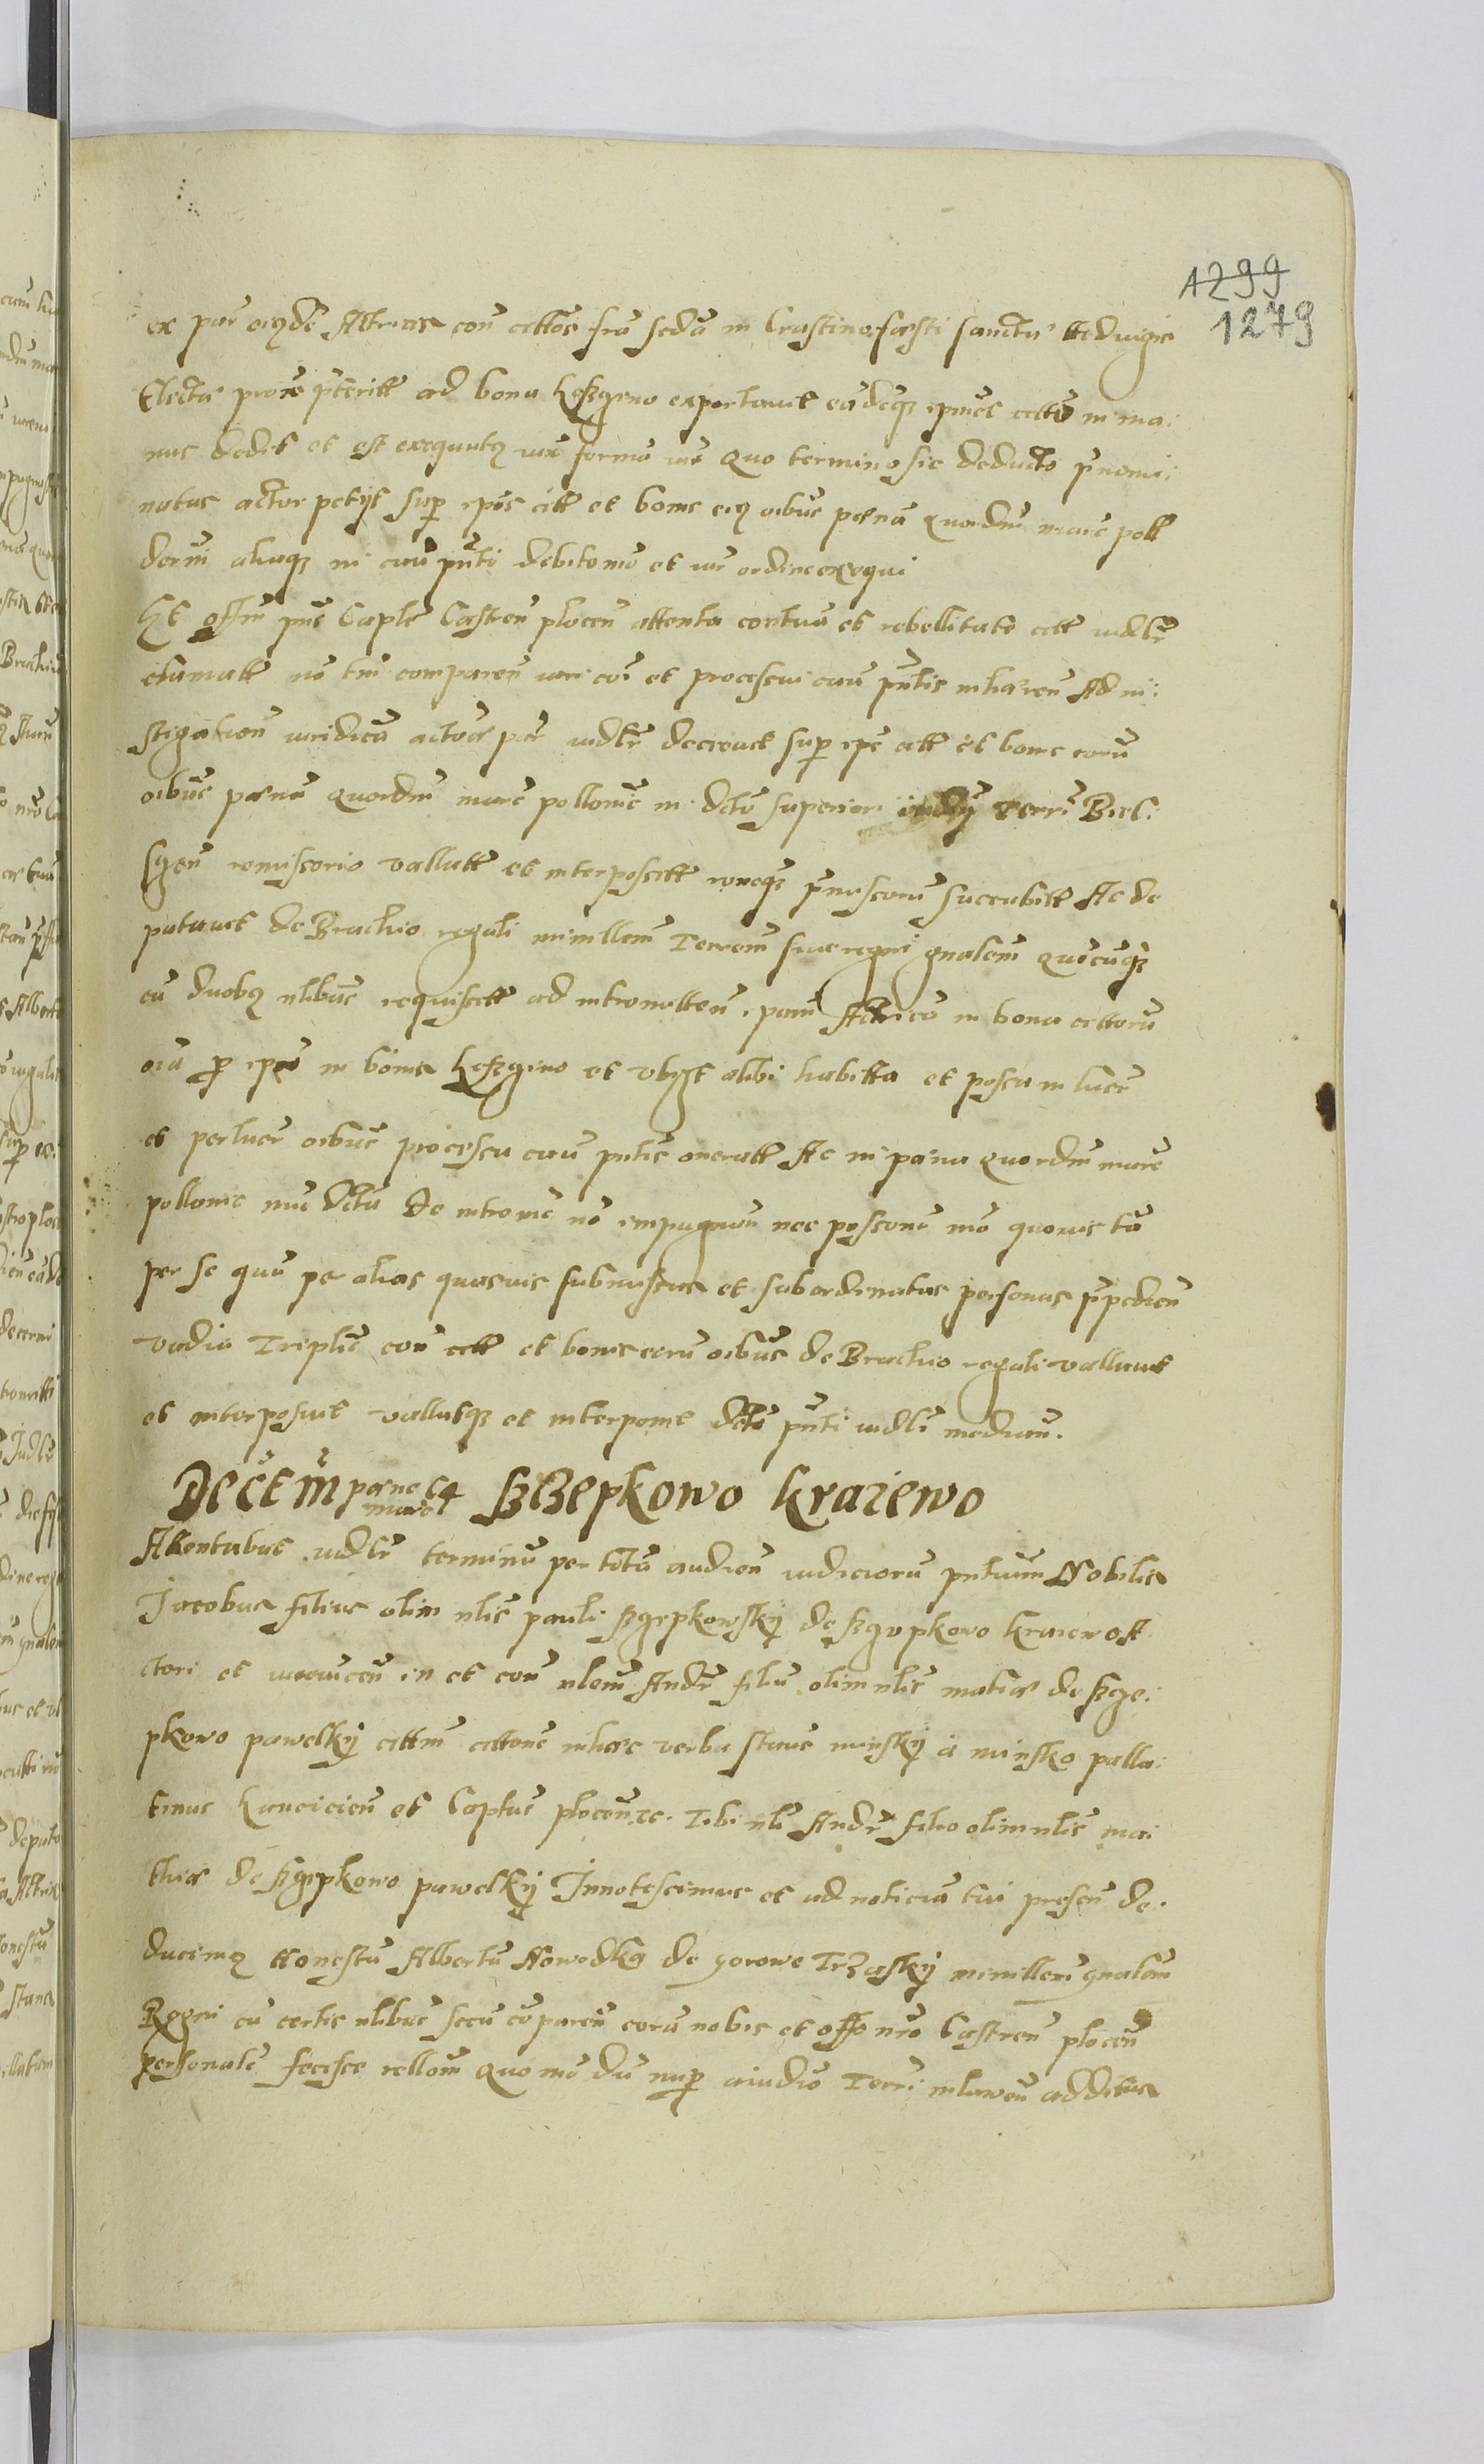 1299
1279
ex par eiusde Actricis con cittos fra scda in Crastino festi sanctæ Heduigis
Electæ prox pterite ad bona exportavit easdeqz citto in ma:
nus dedit et est exequutus iux forma iur Quo termino sic deducto pnomi:
natus actor petijt sup ipis citt et bonis eiq oibus pœna quordm marc poll
derni aliaqz in cau pnti debito mo et iur ordine exequi
Et offm pns Caple Castren plocen attenta contua et rebellitate citt iudlr
clamatt no tm comparen et processui cau pntis inhæren Ad in:
stigation iuridica actoræ par iudlr decrevit sup ipis citt et bonis eoru
oibus pœna quordm marc pollonic in dcto superiori terri Biel:
scen remissorio vallatt et interpositt succubitt Ac de
putavit de Brachio regali minllem Terrem sive regni gnalem quecuqz
cu duobq nlibus requisitt ad intromitten. Actricis in bona cittoru
oia p ipos in bonis et ubiqt alibi habitta et possessa in lucr
et perlucr oibus processu cau pntis oneratt Ac in pœna quordm marc
pollonic nuc dcta de intromis no impugnan nec possone mo quovis ta
per se qua per alias quasvis submissas et subordinatas personas ppedien
vadia Triplic con citt et bonis eoru oibus de Brachio regali vallavit
et interposuit vallatqz et interponit dcto pnti iudli median.
DECEM pœne 14 marc SzCzepkowo Kraiewo
Attentabat iudlr terminu per tota audien iudicioru pntium Nobilis
Jacobus filius olim nlis pauli Szczepkowskij de Szczepkowo Kraiewo A
ctori et iurevincen in et con nlem Andr filiu olim nlis matiæ de Szcze:
pkowo pawelkij cittm cittone in hæc verba Stans minskij a minsko palla:
tinus Lancicien et Captus plocen rc. Tibi nli Andr filio olim nlis ma:
thiæ de Szczepkowo pawelkij Innotescimus et ad noticia tui presen de.
ducimq Honestu Albertu Nowodka de gorowe Trzaskij minillem gnalem
Regni cu certis nlibus secu coparen coru nobis et offo nro Castren plocen
personalr fecisse rellom Quo mo du nup a iudio Terri mlawen additus